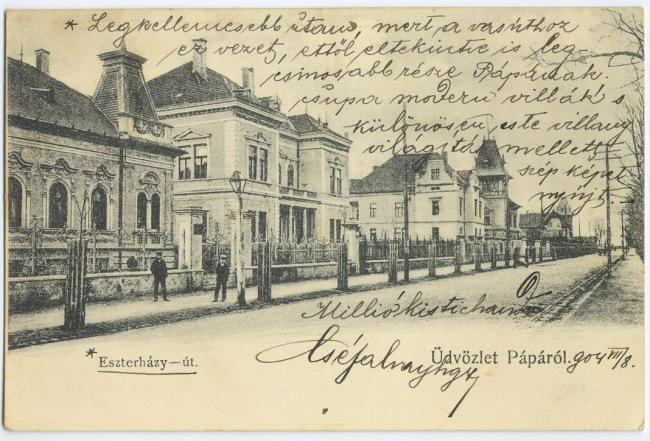 * Legkellemesebb útam, mert a vasúthoz
ez vezet, ettől eltekintve is leg-
csinosabb része Pápának.
csupa modern villák s
különösen este villany
világítás mellett
szép képet
nyújt.
Millió kis
* Eszterházy—út.
Üdvözlet Pápáról. 904 VII/8.